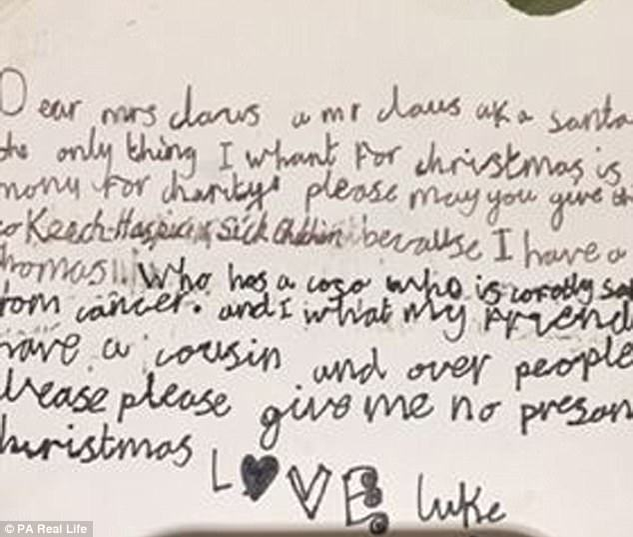 Dear mrs claws a mr claus aka santa
the only thing I whant for christmas is
mony for charity. please may you give
to Keech Hospice Sick because I have a
Thomas. Who has a who is
from cancer. and I what my friend
have a cousin and over people
please please give me no presan
christmas
LOVE luke
© PA Real Life